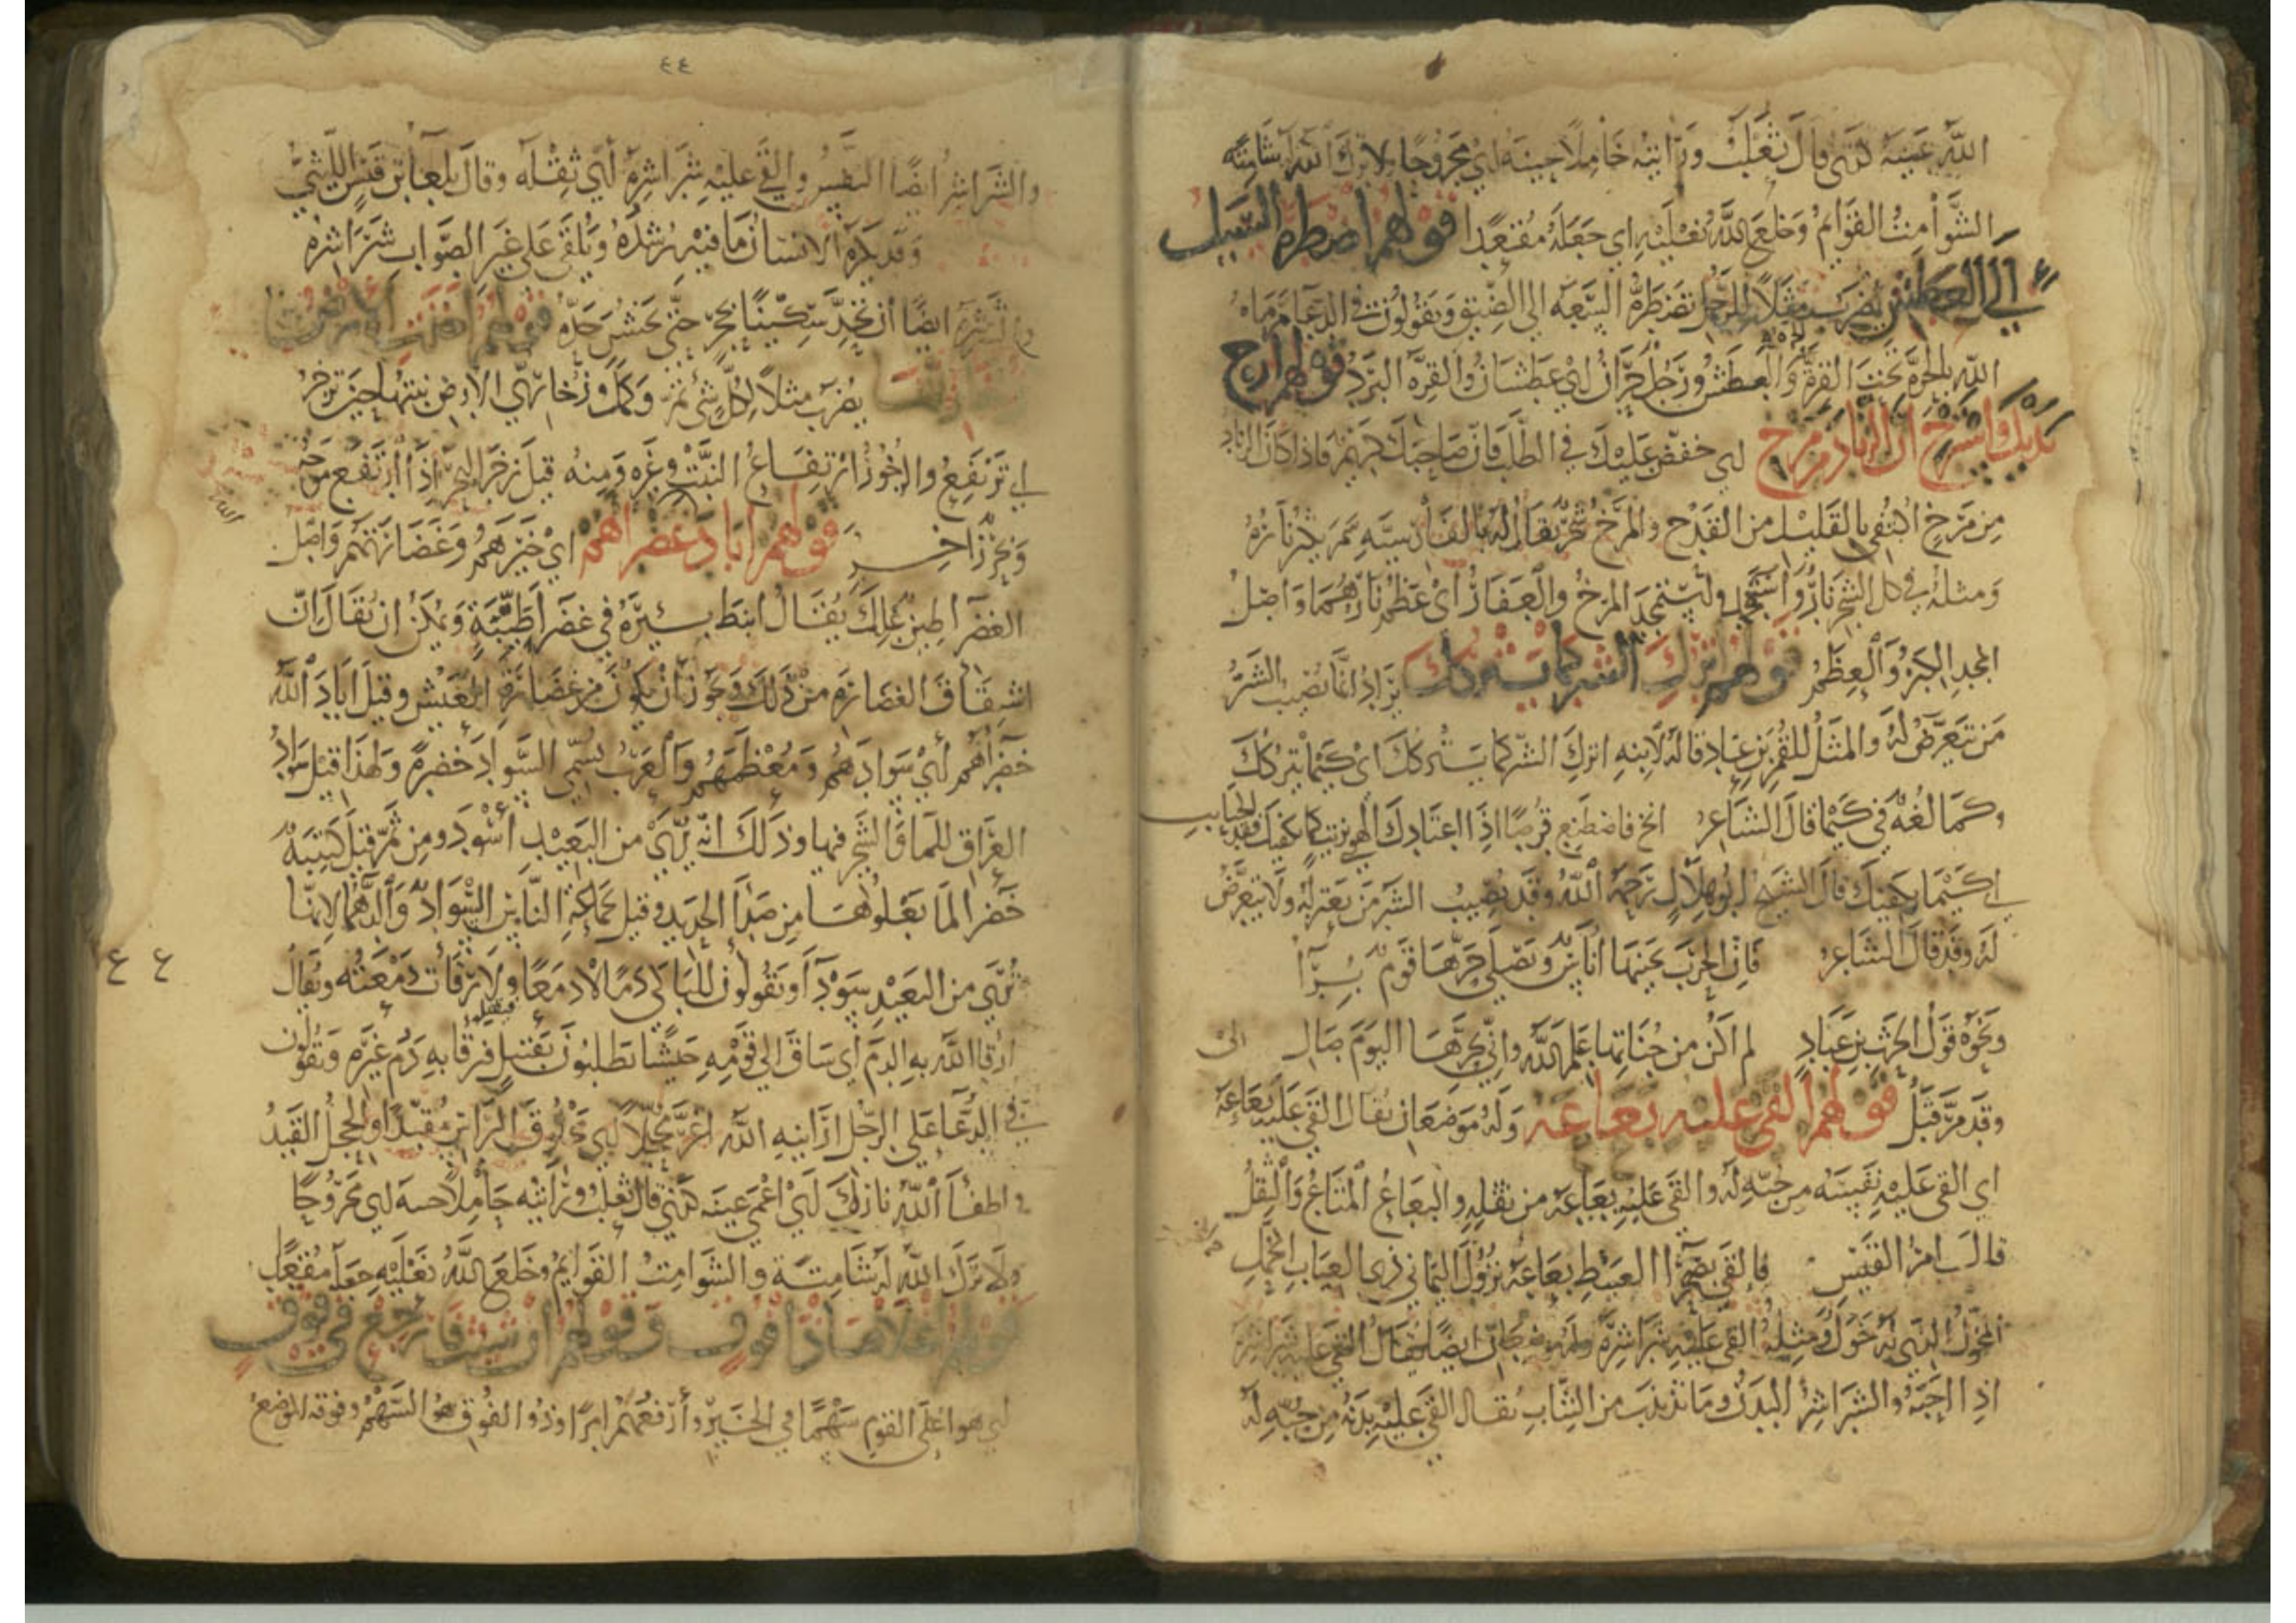 الله عينيه كنى قال ثعلب ورانيه خاملا حينه اي مجروحا لا ترك الله له شامته
الشوامت القوائم وخلع الله نعليه اي جعله مقعدا قولهم اضطره السيل
الى العطش يضرب مثلا للرجل تضطره السعه الى الضيق ويقولون في الدعا رماه
الله بالحره تحت القره والحره العطش ورجل حران اي عطشان والقره البرد قولهم ارخ
يديك واسترخ ان الزناد من مرخ اي خفض عليك في الطلب فان صاحبك كريم فاذا كان الزناد
من مرخ اكتفى بالقليل من القدح والمرخ شجر يقال له بالفارسيه
ومثله في كل الشجر نار واستمجد المرخ والعفار اي عظم نارهما واصل
المجد الكبر والعظم قولهم اترك الشر كما يتركك يراد انما يصيب الشر
من تعرض له والمثل للقمن بن عاد قاله لابنه اترك الشر كما يتركك اي كيما يتركك
وكما لغه في كيما قال الشاعر انخ فاصطنع قرصا اذا اعتادك الهوى بزيت كما يكفيك فقد الحبايب
اي كيما يكفيك قال الشيخ ابو هلال رحمه الله وقد يصيب الشر من يعتزله ولا يتعرض
له وقد قال الشاعر فان الحرب يجنيها اناس ويصلى حرها قوم براا
ونحوه قول الحرث بن عباد لم اكن من جناتها علم الله واني بحرها اليوم صال
وقد مر قبل قولهم القى عليه بعاعه وله موضعان يقال القى عليه بعاعه
اي القى عليه نفسه من حبه له والقى عليه بعاعه من ثقله والبعاع المتاع والثقل
قال امرؤ القيس فالقى بصحرا الغبيط بعاعه نزول اليماني ذي العياب المخول
المخول الذي له خول ومثله القى عليه شراشره وله موضعان ايضا يقال القى عليه شراشره
اذا احبه والشراشر البدن وما تذبذب من الثياب يقال القى عليه بدنه من حبه له
٤٤
والشراشر ايضا النفس والقى عليه شراشره اي ثقله وقال بلعا بن قيس الليثي
وقد يكره الانسان ما فيه رشده ويلقى على غير الصواب شراشره
والشرشره ايضا ان تحد سكينا بحجر حتى يخشن حده قولهم اخذت الارض
زخاريها يضرب مثلا لكل شي تم وكمل وزخاري الارض نبتها حين تزخر
اي ترتفع والزخور ارتفاع النبت وغيره ومنه قيل زخر البحر اذا ارتفع موجه
وبحر زاخر قولهم اباد غضراهم اي خيرهم وغضارتهم واصل
الغضرا طين علك يقال انبط بئره في غضرا طيبة ويمكن ان يقال ان
اشتقاق الغضارة من ذلك ويجوز ان يكون من غضارة العيش وقيل اباد الله
خضراهم اي سوادهم ومعظمهم والعرب تسمي السواد خضره ولهذا قيل سواد
العراق للما والشجر فيها وذلك انه يرى من البعيد اسود ومن ثم قيل كتيبة
خضرا لما يعلوها من صدا الحديد وقيل لجماعة الناس السواد والدهما لانها
ترى من البعيد سودا ويقولون للباكي دما لا دمعا ولا رقات دمعته ويقال
ارقا الله به الدم اي ساق الى قومه جيشا يطلبون بقتيل فيقتل فرقا به دم غيره ويقولون
في الدعا على الرجل ارانيه الله اغر محجلا اي محلوق الراس مقيدا والحجل القيد
واطفا الله ناره اي اعمى عينه كنى قال ثعلب ورانيه حاملا حسه اي مجروحا
ولا ترك الله له شامتة والشوامت القوايم وخلع الله نعليه جعله مقعدا
قولهم اعلاها ذا فوق وقولهم ان شئت فارجع في فوق
اي هو اعلى القوم سهما في الخير وارفعهم امرا وذو الفوق هو السهم وفوقه الموضع
٤٤